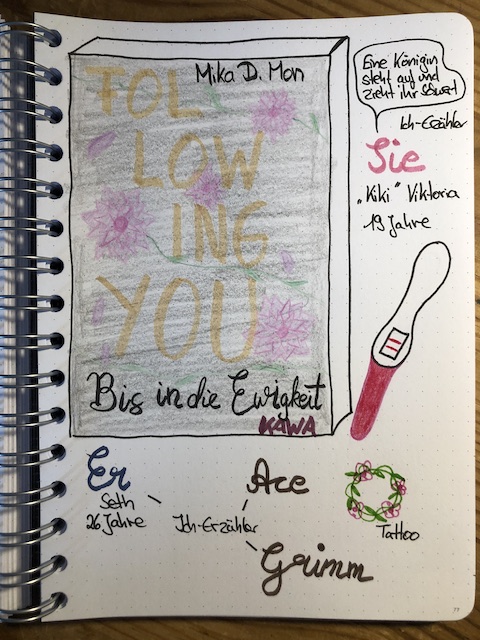 Mika D. Mon
FOL
LOW
ING
YOU
Bis in die Ewigkeit
KAWA
Eine Königin
steht auf und
zieht ihr Schwert
Ich-Erzähler
Sie
„Kiki“ Viktoria
19 Jahre
Er
Seth
26 Jahre
Ich-Erzähler
Ace
Grimm
Tattoo